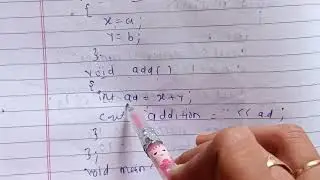 {
x=a;
Y=b;
}
void add( )
{
int ad = x+Y;
cout addition = " << ad;
}
};
void main